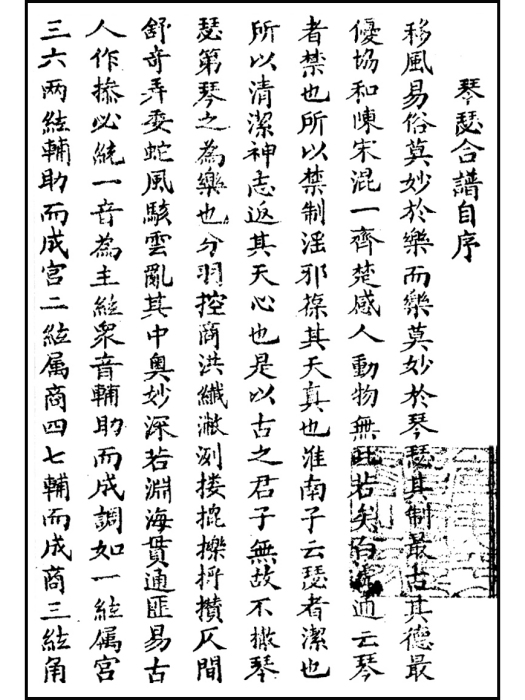 琴瑟合譜自序
移風易俗莫妙於樂而樂莫妙於琴瑟其制最古其德最
優協和悚宋混一齊楚感人動物無此若矣白虎通云琴
者禁也所以禁制淫邪葆其天真也淮南子云瑟者潔也
所以清潔神志返其天心也是以古之君子無故不撤琴
瑟第琴之為樂也分羽控商洪纖瀏捘摝擽捋攢仄間
舒奇弄耍蛇風駭雲亂其中奧妙深若淵海貫通匪易古
人作操必統一音為主絃衆音輔助而成調如一絃属宮
三六两絃輔助而成宮二絃属商四七輔而成商三絃角